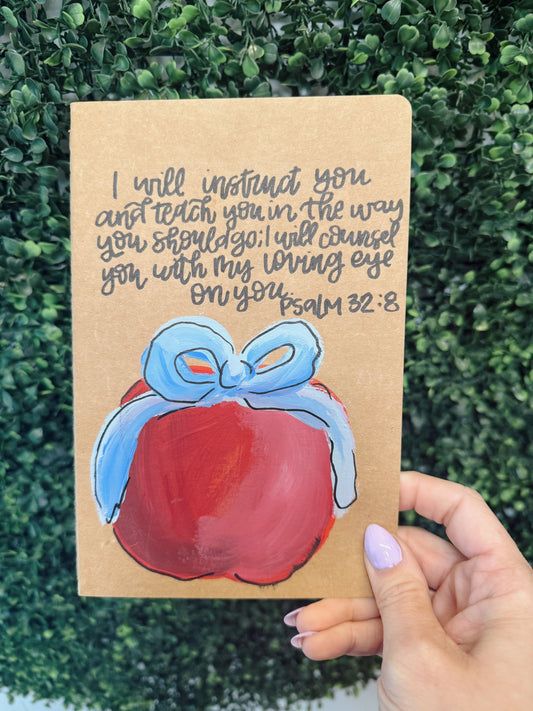 I will instruct you
and teach you in the way
you should go; I will counsel
you with my loving eye
on you. Psalm 32:8